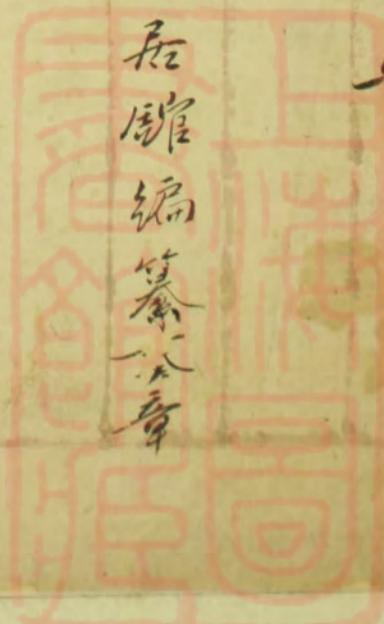 居館編纂章
上海圖
書館藏